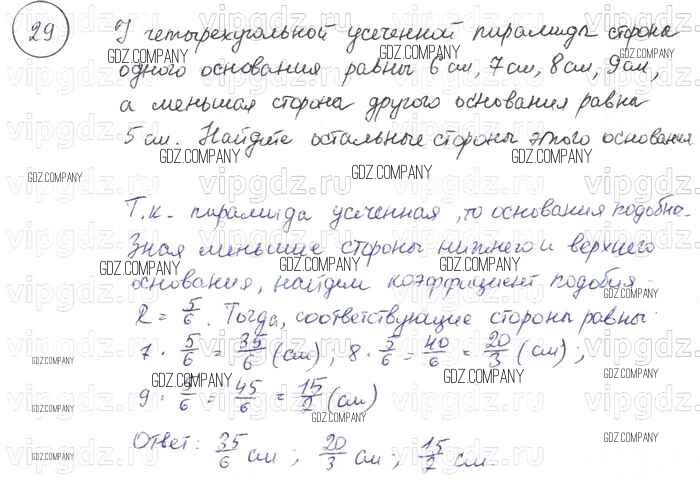 29 У четырехугольной усеченной пирамиды сторона
одного основания равны 6 см, 7 см, 8 см, 9 см,
а меньшая сторона другого основания равна
5 см. Найдите остальные стороны этого основания
Т.к. пирамида усеченная, то основания подобны.
Зная меньшие стороны нижнего и верхнего
основания, найдем коэффициент подобия
k = 5/6. Тогда, соответствующие стороны равны:
7 · 5/6 = 35/6 (см); 8 · 5/6 = 40/6 = 20/3 (см);
9 · 5/6 = 45/6 = 15/2 (см)
Ответ: 35/6 см; 20/3 см; 15/2 см.
GDZ.COMPANY
vipgdz.ru